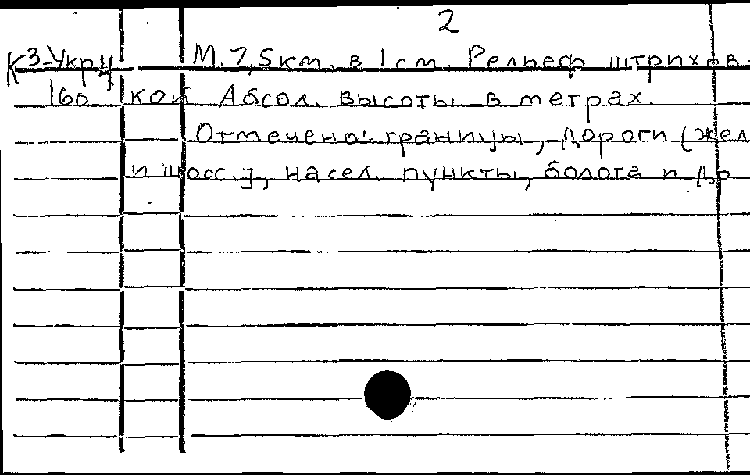 2
К 3-Укр 4 М. 7,5 км. в 1 см. Рельеф штрихов-
160 кой Абсол. высоты в метрах.
Отмечено: границы, дороги (жел
и шосс.), насел. пункты, болота и др